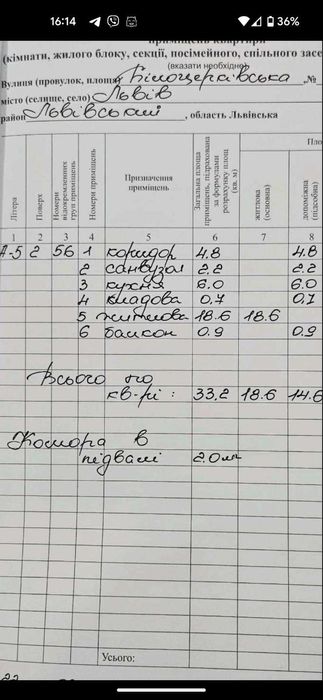 16:14
36%
приміщень квартири
(кімнати, жилого блоку, секції, посімейного, спільного засе
(вказати необхідне)
Вулиця (провулок, площа) Білоцерківська, №
місто (селище, село) Львів
район Львівський, область Львівська
Літера
Поверх
Номери відокремлених груп приміщень
Номери приміщень
Призначення приміщень
Загальна площа приміщень, підрахована за формулами розрахунку площ (кв. м)
Пло
житлова (основна)
допоміжна (підсобна)
1 2 3 4 5 6 7 8
А-5 2 56 1 коридор 4.8 4.8
2 санвузол 2.2 2.2
3 кухня 6.0 6.0
4 кладова 0.7 0.7
5 житлова 18.6 18.6
6 балкон 0.9 0.9
Всього по
кв-рі: 33.2 18.6 14.6
Комора в
підвалі 2.0
Усього: